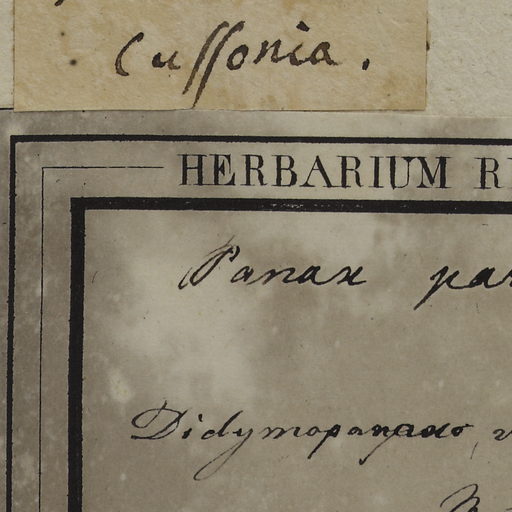 Cussonia.
HERBARIUM R
Panax pa
Didymopanax